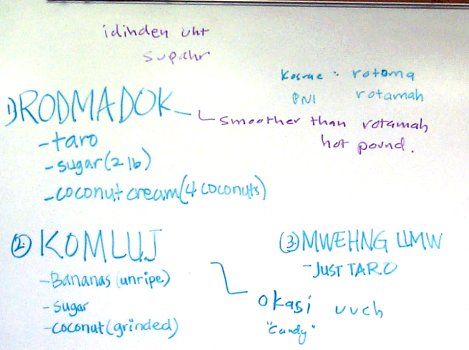 idinden uht
supahr
Kosrae : rotoma
PNI rotamah
1) RODMADOK - smoother than rotamah
hot pound.
- taro
- sugar (2 lb)
- coconut cream (4 coconuts)
2) KOMLUJ
- Bananas (unripe)
- sugar
- coconut (grinded)
3) MWEHNG UMW
- JUST TARO
okasi uuch
"candy"